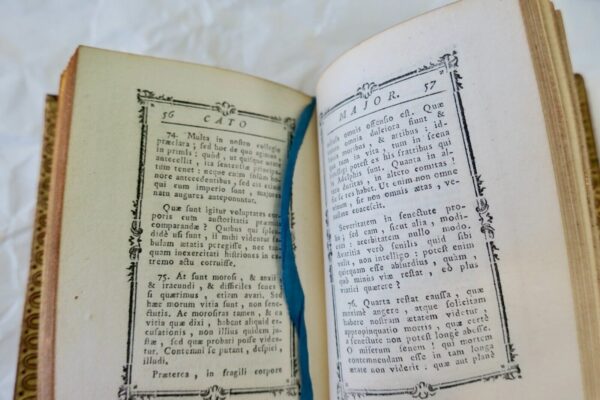 56
CATO
74. Multa in nostro collegio
præclara; sed hoc de quo agimus,
in primis: quòd, ut quisque ætate
antecellit, ita sententiæ principatum
tenet: neque enim solùm
honore antecedentibus, sed iis etiam
qui cum imperio sunt, majores
natu augures anteponuntur.
Quæ sunt igitur voluptates
corporis cum auctoritatis præmiis
comparandæ? Quibus qui splendidè
usi sunt, ii mihi videntur
fabulam ætatis peregisse, nec tanquam
inexercitati histriones in extremo
actu corruisse.
75. At sunt morosi, & anxii
& iracundi, & difficiles senes:
si quærimus, etiam avari. Sed
hæc morum vitia sunt, non senectutis.
At morositas tamen, & ea
vitia quæ dixi, habent aliquid
excusationis, non illius quidem
justæ, sed quæ probari posse videtur.
Contemni se putant, despici,
illudi.
Præterea, in fragili corpore
MAJOR.
57
omnis offensio est. Quæ
omnia dulciora fiunt &
moribus, & artibus: id
in vita, tum in scena
intelligi potest ex his fratribus qui
in Adelphis sunt. Quanta in
duritas, in altero comitas!
se res habet. Ut enim non omne
vinum, sic non omnis ætas,
vetustate coacescit.
Severitatem in senectute
probo, sed eam, sicut alia,
modicam: acerbitatem nullo modo.
Avaritia verò senilis quid sibi
velit, non intelligo: potest enim
quicquam esse absurdius, quàm,
quò minùs viæ restat, eò plus
viatici quærere?
76. Quarta restat caussa, quæ
maximè angere, atque solicitam
habere nostram ætatem videtur,
appropinquatio mortis; quæ certè
à senectute non potest longè abesse.
O miserum senem! qui mortem
contemnendam esse in tam longa
ætate non viderit: quæ aut planè